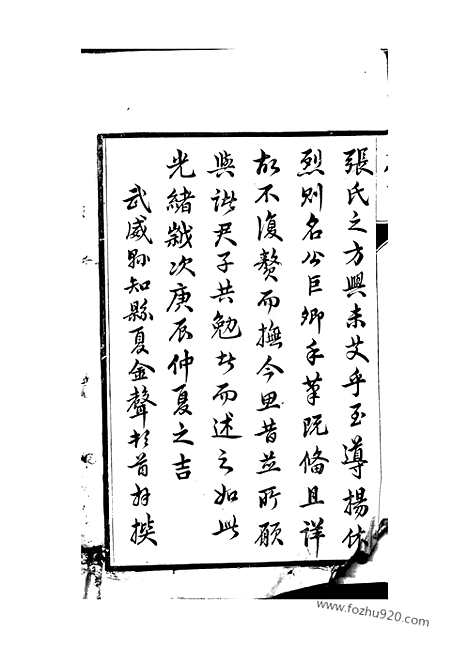 張氏之方興未艾乎至導揚休
烈則名公巨卿手筆既備且詳
故不復贅而撫今思昔並所願
與諸君子共勉者而述之如此
光緒歲次庚辰仲夏之吉
武威縣知縣夏金聲頓首拜撰
www.fozhu920.com